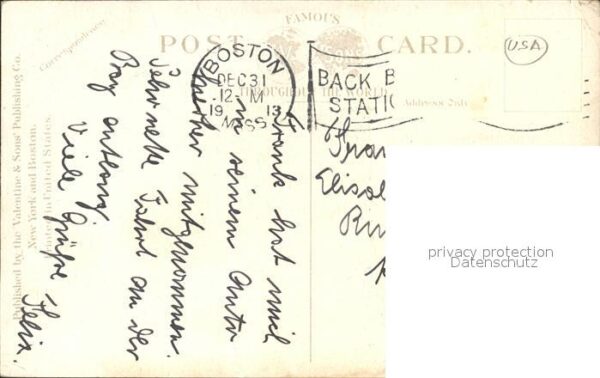 FAMOUS
POST CARD.
THROUGHOUT THE WORLD
Correspondence:
Address Only
BOSTON
DEC 31
12-M
1913
MASS.
BACK B
STATI
USA
Frank hat mich
in seinem Auto
hierher mitgenommen.
Sehr nette Fahrt an der
Bay entlang.
Viele Grüße, Felix.
Frau
Elisa
Published by the Valentine & Sons' Publishing Co.
New York and Boston.
Printed in United States.
privacy protection
Datenschutz